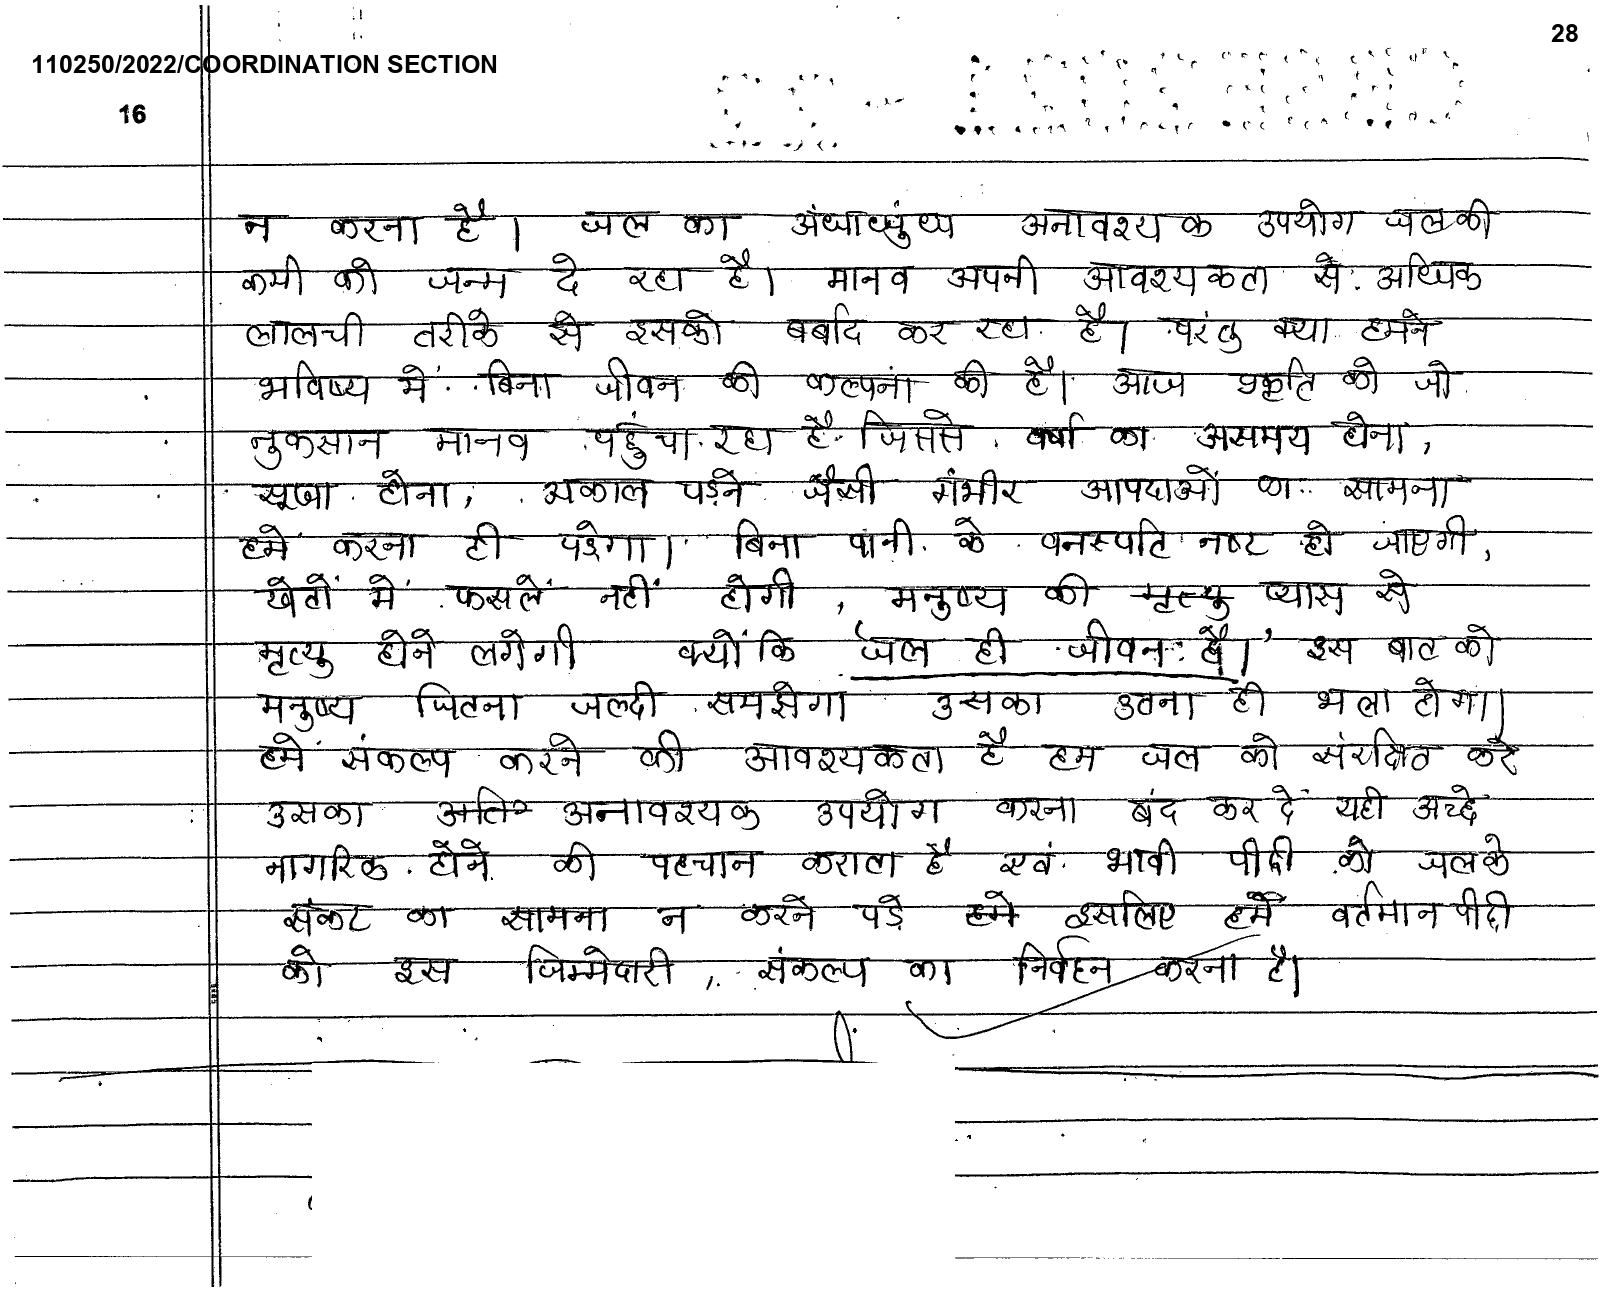 28
110250/2022/COORDINATION SECTION
16
न करना है। जल का अंधाधुंध अनावश्यक उपयोग जल की
कमी को जन्म दे रहा है। मानव अपनी आवश्यकता से अधिक
लालची तरीके से इसको बर्बाद कर रहा है। परंतु क्या हमने
भविष्य में बिना जीवन की कल्पना की है। आज प्रकृति को जो
नुकसान मानव पहुंचा रहा है जिससे वर्षा का असमय होना,
सूखा होना, अकाल पड़ने जैसी गंभीर आपदाओं का सामना
हमें करना ही पड़ेगा। बिना पानी के वनस्पति नष्ट हो जाएगी,
खेतों में फसलें नहीं होगी, मनुष्य की मृत्यु प्यास से
मृत्यु होने लगेगी क्योंकि 'जल ही जीवन है।' इस बात को
मनुष्य जितना जल्दी समझेगा उसका उतना ही भला होगा।
हमें संकल्प करने की आवश्यकता है हम जल को संरक्षित करे
उसका अति अनावश्यक उपयोग करना बंद कर दें यही अच्छे
नागरिक होने की पहचान कराता है एवं भावी पीढ़ी को जल के
संकट का सामना न करने पड़े हमें इसलिए हमें वर्तमान पीढ़ी
को इस जिम्मेदारी, संकल्प का निर्वहन करना है।